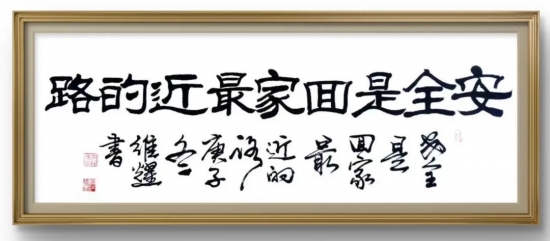 安全是回家最近的路
安全
是
回家
最
近的
路
庚子
冬
维耀
書